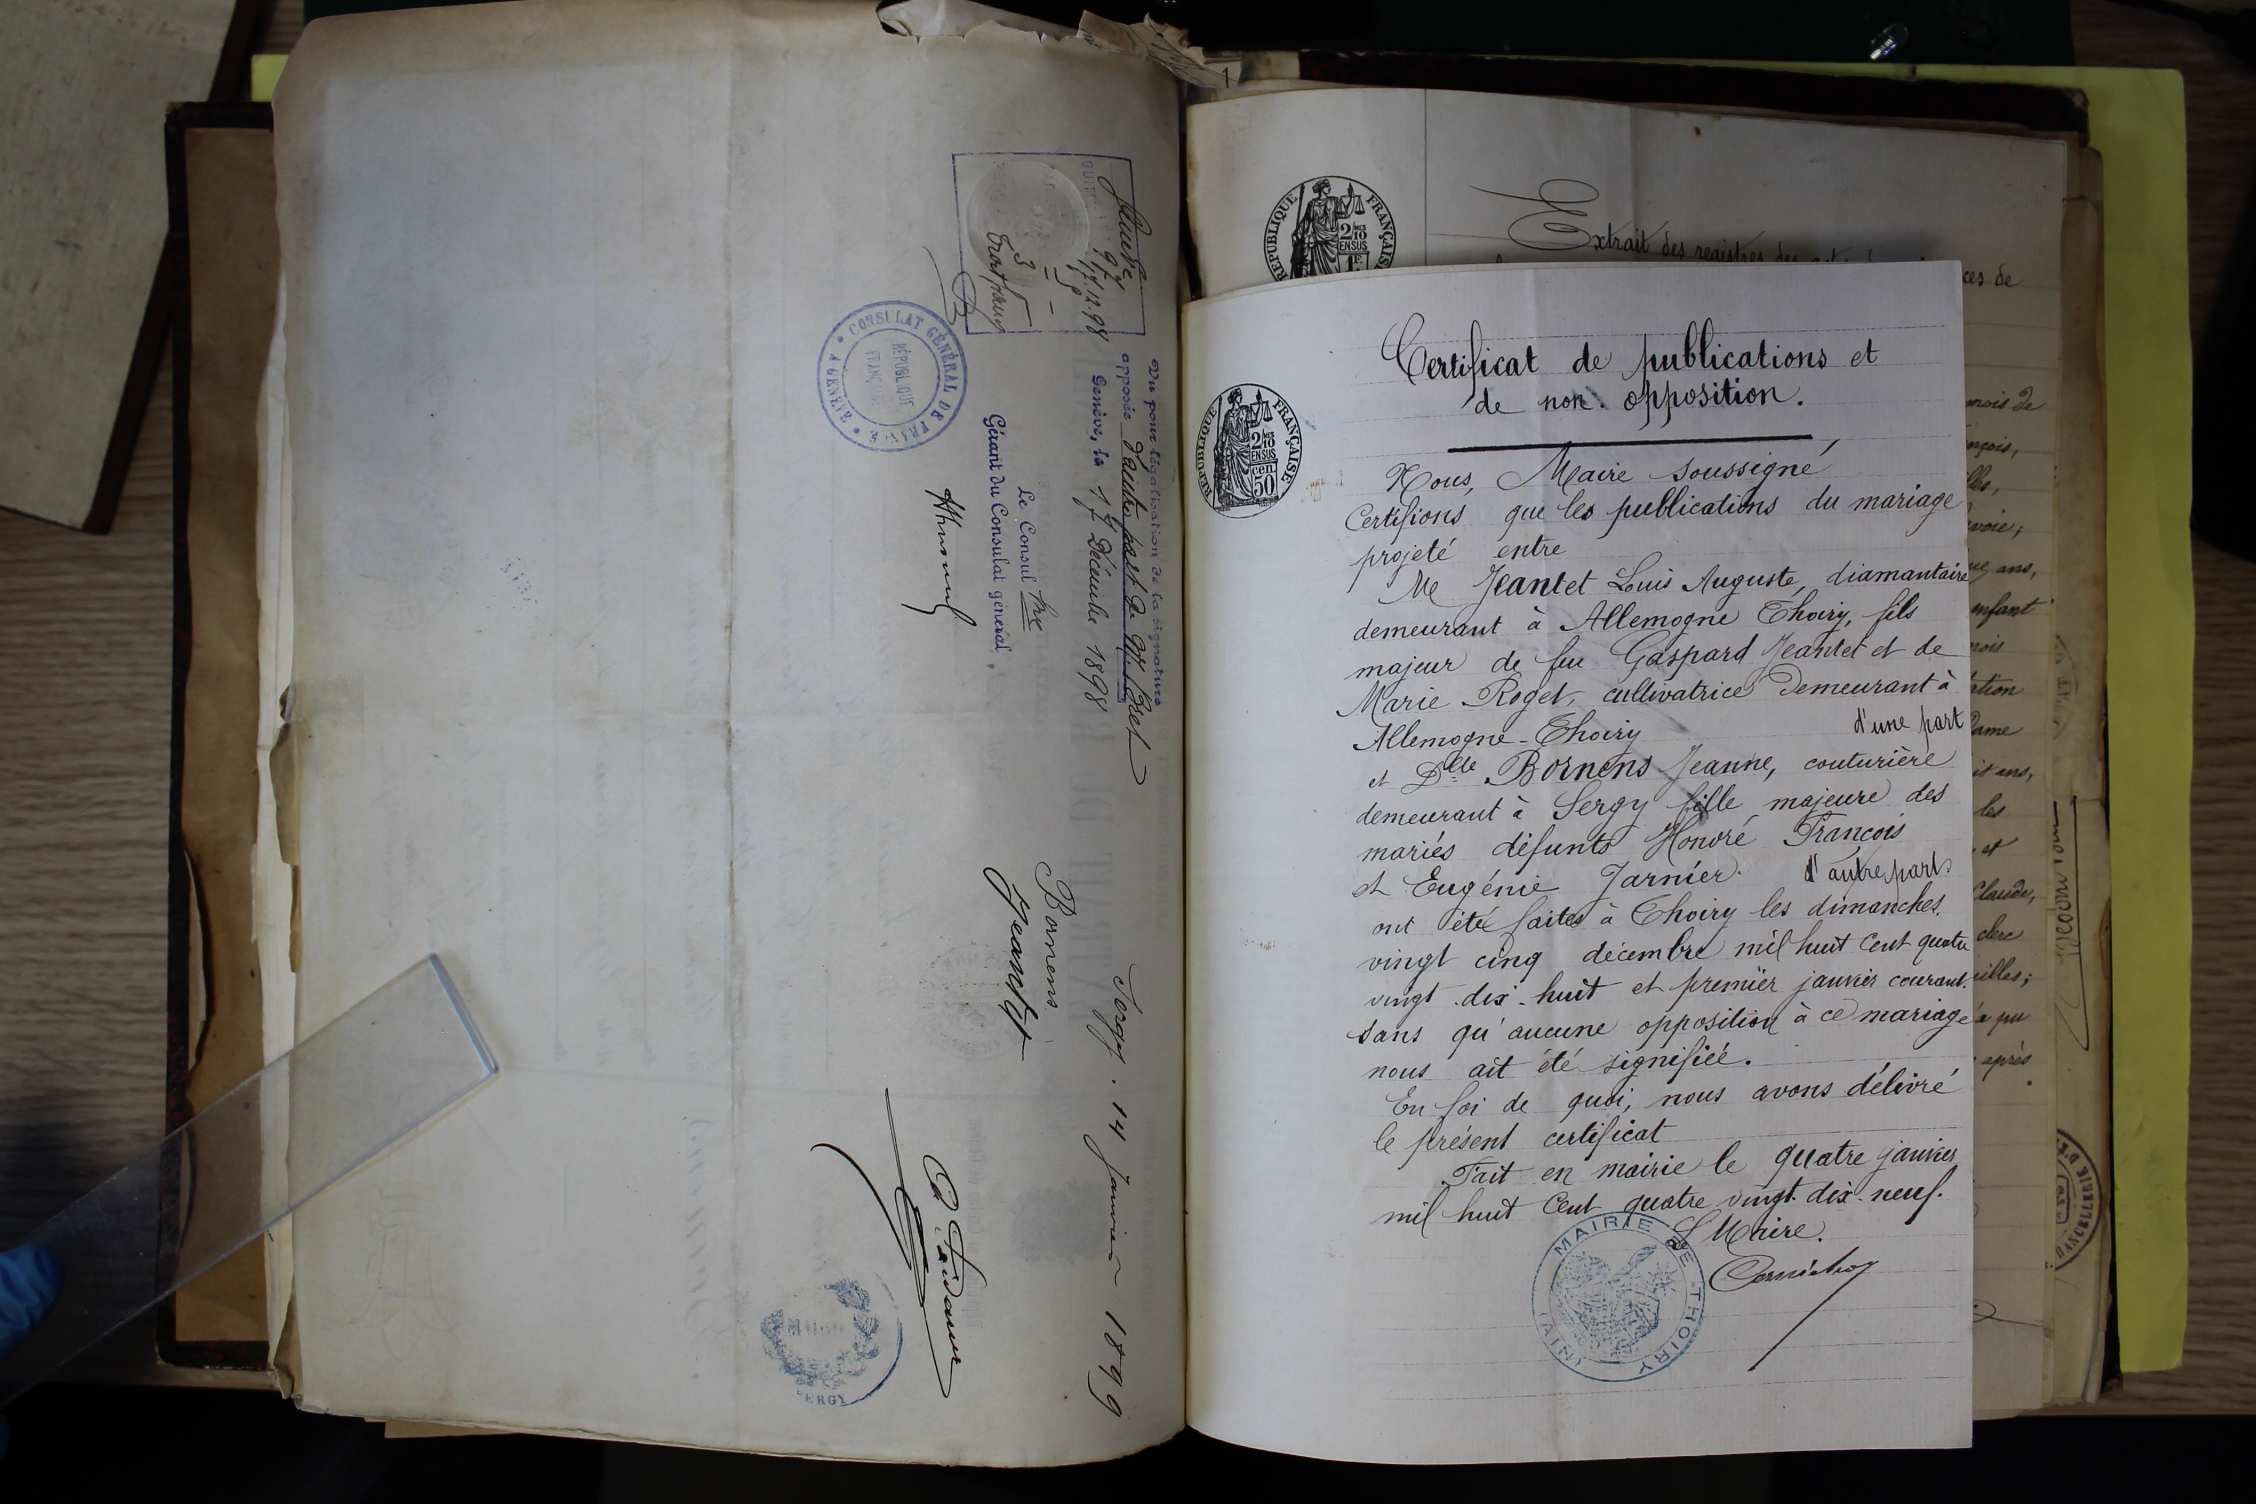 Vu pour légalisation de la signature
apposée d'autre part de M. Chet
Genève, le 17 Décembre 1898
Le Consul
Gérant du Consulat général,
CONSULAT GÉNÉRAL DE FRANCE
A GENÈVE
RÉPUBLIQUE
17.12.98
3
Sergy. 14 Janvier 1899
Bornens
Jeantet
SERGY
Extrait des registres des
REPUBLIQUE FRANÇAISE
2/10
EN SUS
Certificat de publications et
de non. opposition.
REPUBLIQUE FRANÇAISE
2/10
EN SUS
cen
50
Nous, Maire soussigné
Certifions que les publications du mariage
projeté entre
Mr Jeantet Louis Auguste, diamantaire
demeurant à Allemogne Thoiry, fils
majeur de feu Gaspard Jeantet et de
Marie Roget, cultivatrice demeurant à
Allemogne-Thoiry d'une part
et Dlle Bornens Jeanne, couturière
demeurant à Sergy fille majeure des
mariés défunts Honoré François
et Eugénie Jarnier. d'autre part.
ont été faites à Thoiry les dimanches
vingt cinq décembre mil huit cent quatre
vingt. dix. huit et premier janvier courant.
sans qu'aucune opposition à ce mariage
nous ait été signifiée.
En foi de quoi, nous avons délivré
le présent certificat
Fait en mairie le quatre janvier
mil huit cent quatre vingt. dix. neuf.
Le Maire.
MAIRIE DE THOIRY
(AIN)